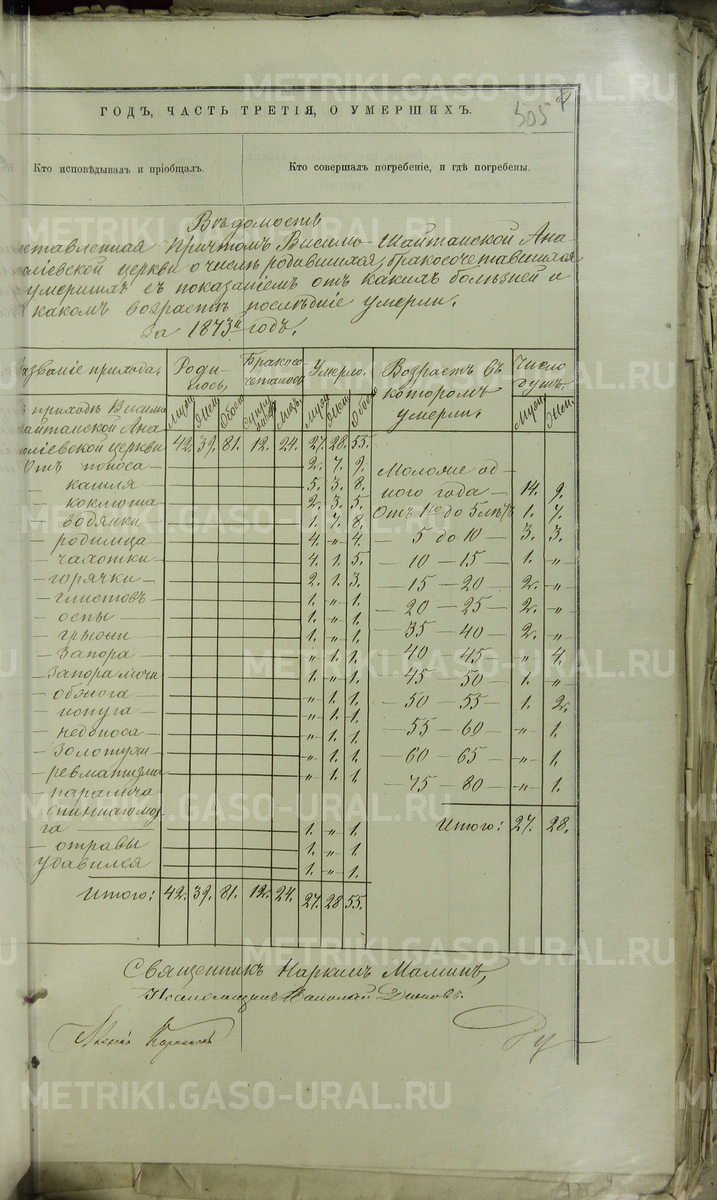 METRIKI.GASO-URAL.RU
ГОДЪ, ЧАСТЬ ТРЕТІЯ, О УМЕРШИХЪ.
505
Кто исповѣдывалъ и пріобщалъ.
Кто совершалъ погребеніе, и гдѣ погребены.
Вѣдомость
ставленная Причтомъ Висимо-Шайтанской Ана
оліевской церкви о числѣ родившихся, бракосочетавшихся
умершихъ съ показаніемъ отъ какихъ болѣзней и
какомъ возрастѣ послѣдніе умерли.
За 1873й годъ.
азваніе прихода. Роди-лось. Бракосо-четалось. Умерло. Возрастъ въ которомъ умерли. Число душъ.
Муж. Жен. Обоего Муж. Жен. Обоего Муж. Жен.
приходѣ Висимо
айтанской Ана
оліевской церкви 42. 39. 81. 12. 24. 27. 28. 55.
Отъ поноса 2. 7. 9.
— кашля 5. 3. 8.
— коклюша 2. 3. 5.
— водянки 1. 7. 8.
— родимца 4. „ 4.
— чахотки 4. 1. 5.
— горячки 2. 1. 3.
— глистовъ 1. „ 1.
— оспы 1. „ 1.
— грыжи 1. „ 1.
— запора „ 1. 1.
— запора мочи 1. „ 1.
— обжога „ 1. 1.
— испуга „ 1. 1.
— недоноса „ 1. 1.
— золотухи „ 1. 1.
— ревматизма „ 1. 1.
— паралича
спиннаго моз
га 1. „ 1.
— отравы 1. „ 1.
удавился 1. „ 1.
Итого: 42. 39. 81. 12. 24. 27. 28 55.
Моложе од-
ного года — 14. 9.
Отъ 1го до 5 лѣтъ 1. 7.
— 5 до 10 — 3. 3.
— 10 — 15 — 1. „
— 15 — 20 — 2. „
— 20 — 25 — 2. „
35 — 40 — 2. „
40 45 „ 4.
— 45 — 50 1. „
— 50 — 55 — 1. 2.
55 — 60 — „ 1.
— 60 — 65 — „ 1.
— 75 — 80 — „ 1.
Итого: 27. 28.
Священникъ Наркисъ Маминъ,
METRIKI.GASO-URAL.RU